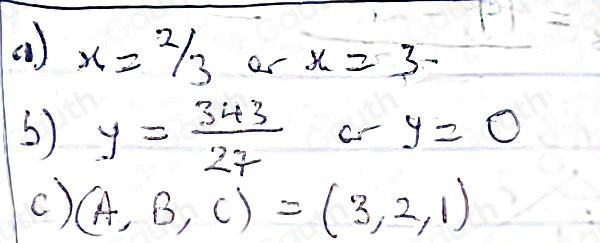 a) x = 2/3 or x = 3
b) y = 343/27 or y = 0
c) (A, B, C) = (3, 2, 1)